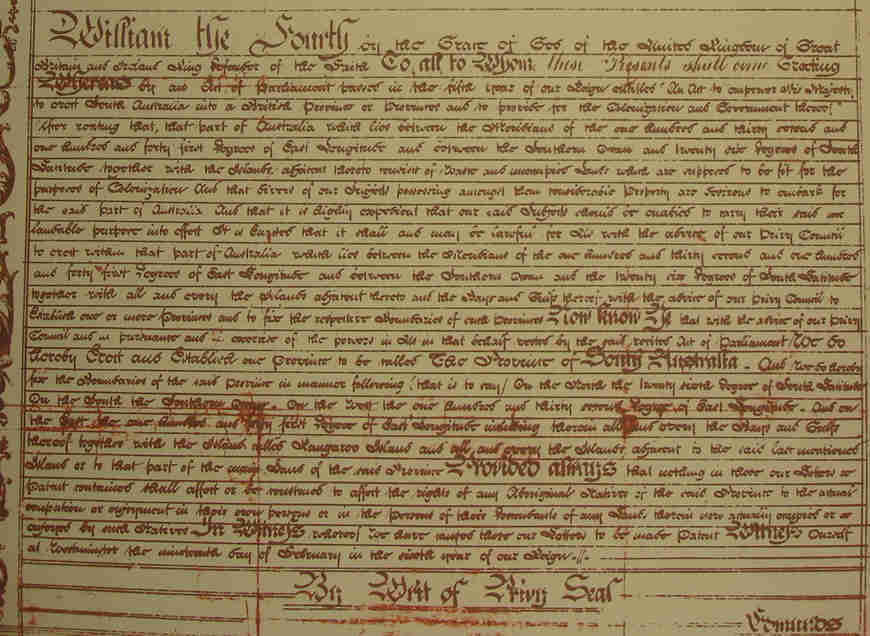 William the Fourth by the Grace of God of the United Kingdom of Great
Britain and Ireland King Defender of the Faith To all to Whom these Presents shall come Greeting
Whereas by an Act of Parliament passed in the fifth year of our Reign entitled "An Act to empower His Majesty
to erect South Australia into a British Province or Provinces and to provide for the Colonization and Government thereof"
After reciting that, that part of Australia which lies between the Meridians of the one hundred and thirty second and
one hundred and forty first degrees of East Longitude and between the Southern Ocean and twenty six degrees of South
Latitude together with the Islands adjacent thereto consist of Waste and unoccupied Lands which are supposed to be fit for the
purposes of Colonization And that divers of our Subjects possessing amongst them considerable Property are desirous to embark for
the said part of Australia And that it is highly expedient that our said Subjects should be enabled to carry their said
laudable purpose into effect It is Enacted that it shall and may be lawful for Us with the advice of our Privy Council
to erect within that part of Australia which lies between the Meridians of the one hundred and thirty second and one hundred
and forty first degrees of East Longitude and between the Southern Ocean and the twenty six degrees of South Latitude
together with all and every the Islands adjacent thereto and the Bays and Gulfs thereof with the advice of our Privy Council to
Establish one or more Provinces and to fix the respective Boundaries of such Provinces Now Know Ye that with the advice of our Privy
Council and in pursuance and in exercise of the powers in Us in that behalf vested by the said recited Act of Parliament We do
hereby Erect and Establish one Province to be called The Province of South Australia - And we do hereby
fix the Boundaries of the said Province in manner following (that is to say) On the North the twenty sixth degree of South Latitude
On the South the Southern Ocean - On the West the one hundred and thirty second degree of East Longitude - And on
the East the one hundred and forty first degree of East Longitude including therein all and every the Bays and Gulfs
thereof together with the Island called Kangaroo Island and all and every the Islands adjacent to the said last mentioned
Island or to that part of the main Land of the said Province Provided always that nothing in these our Letters
Patent contained shall affect or be construed to affect the rights of any Aboriginal Natives of the said Province to the actual
occupation or enjoyment in their own persons or in the persons of their Descendants of any Lands therein now actually occupied or
enjoyed by such Natives In Witness whereof We have caused these our Letters to be made Patent Witness Ourself
at Westminster the nineteenth day of February in the sixth year of our Reign
By Writ of Privy Seal
Edmunds